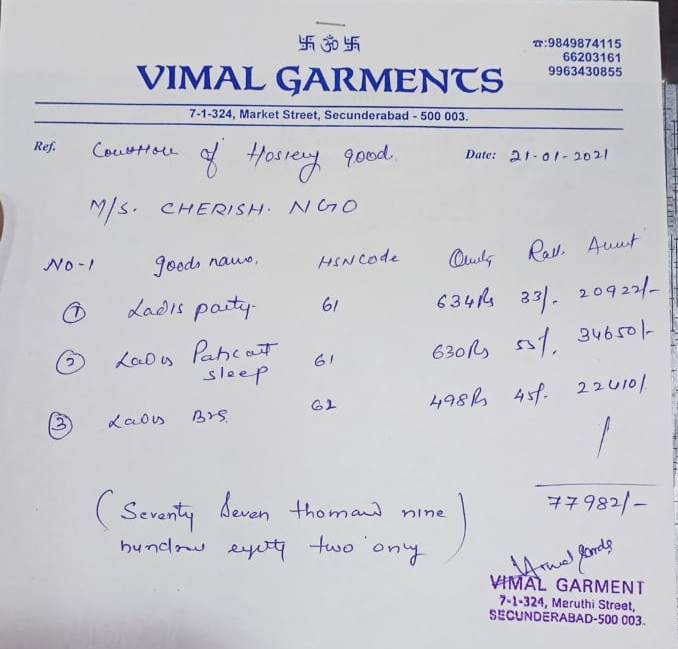 卐 ॐ 卐
☎:9849874115
66203161
9963430855
VIMAL GARMENTS
7-1-324, Market Street, Secunderabad - 500 003.
Ref. of Hosiery good. Date: 21-01-2021
M/S. CHERISH. NGO
NO-1 goods HSN Code
① Ladis party. 61 634 33/. 20922/-
② Ladis sleep 61 630 55/. 34650/-
③ Ladis 62 498 45/. 22410/.
77982/-
(Seventy Seven nine
two only)
VIMAL GARMENT
7-1-324, Maruthi Street,
SECUNDERABAD-500 003.